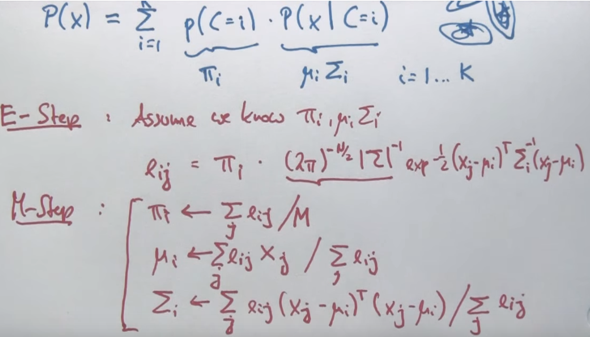 P(x) = Σ_{i=1} p(C=i) · P(x|C=i)
π_i μ_i Σ_i i=1...K
E-Step : Assume we know π_i, μ_i Σ_i
e_ij = π_i · (2π)^{-N/2} |Σ|^{-1} exp -1/2 (x_j-μ_i)^T Σ_i^{-1} (x_j-μ_i)
M-Step : π_i ← Σ_j e_ij / M
μ_i ← Σ_j e_ij x_j / Σ_j e_ij
Σ_i ← Σ_j e_ij (x_j-μ_i)^T (x_j-μ_i) / Σ_j e_ij